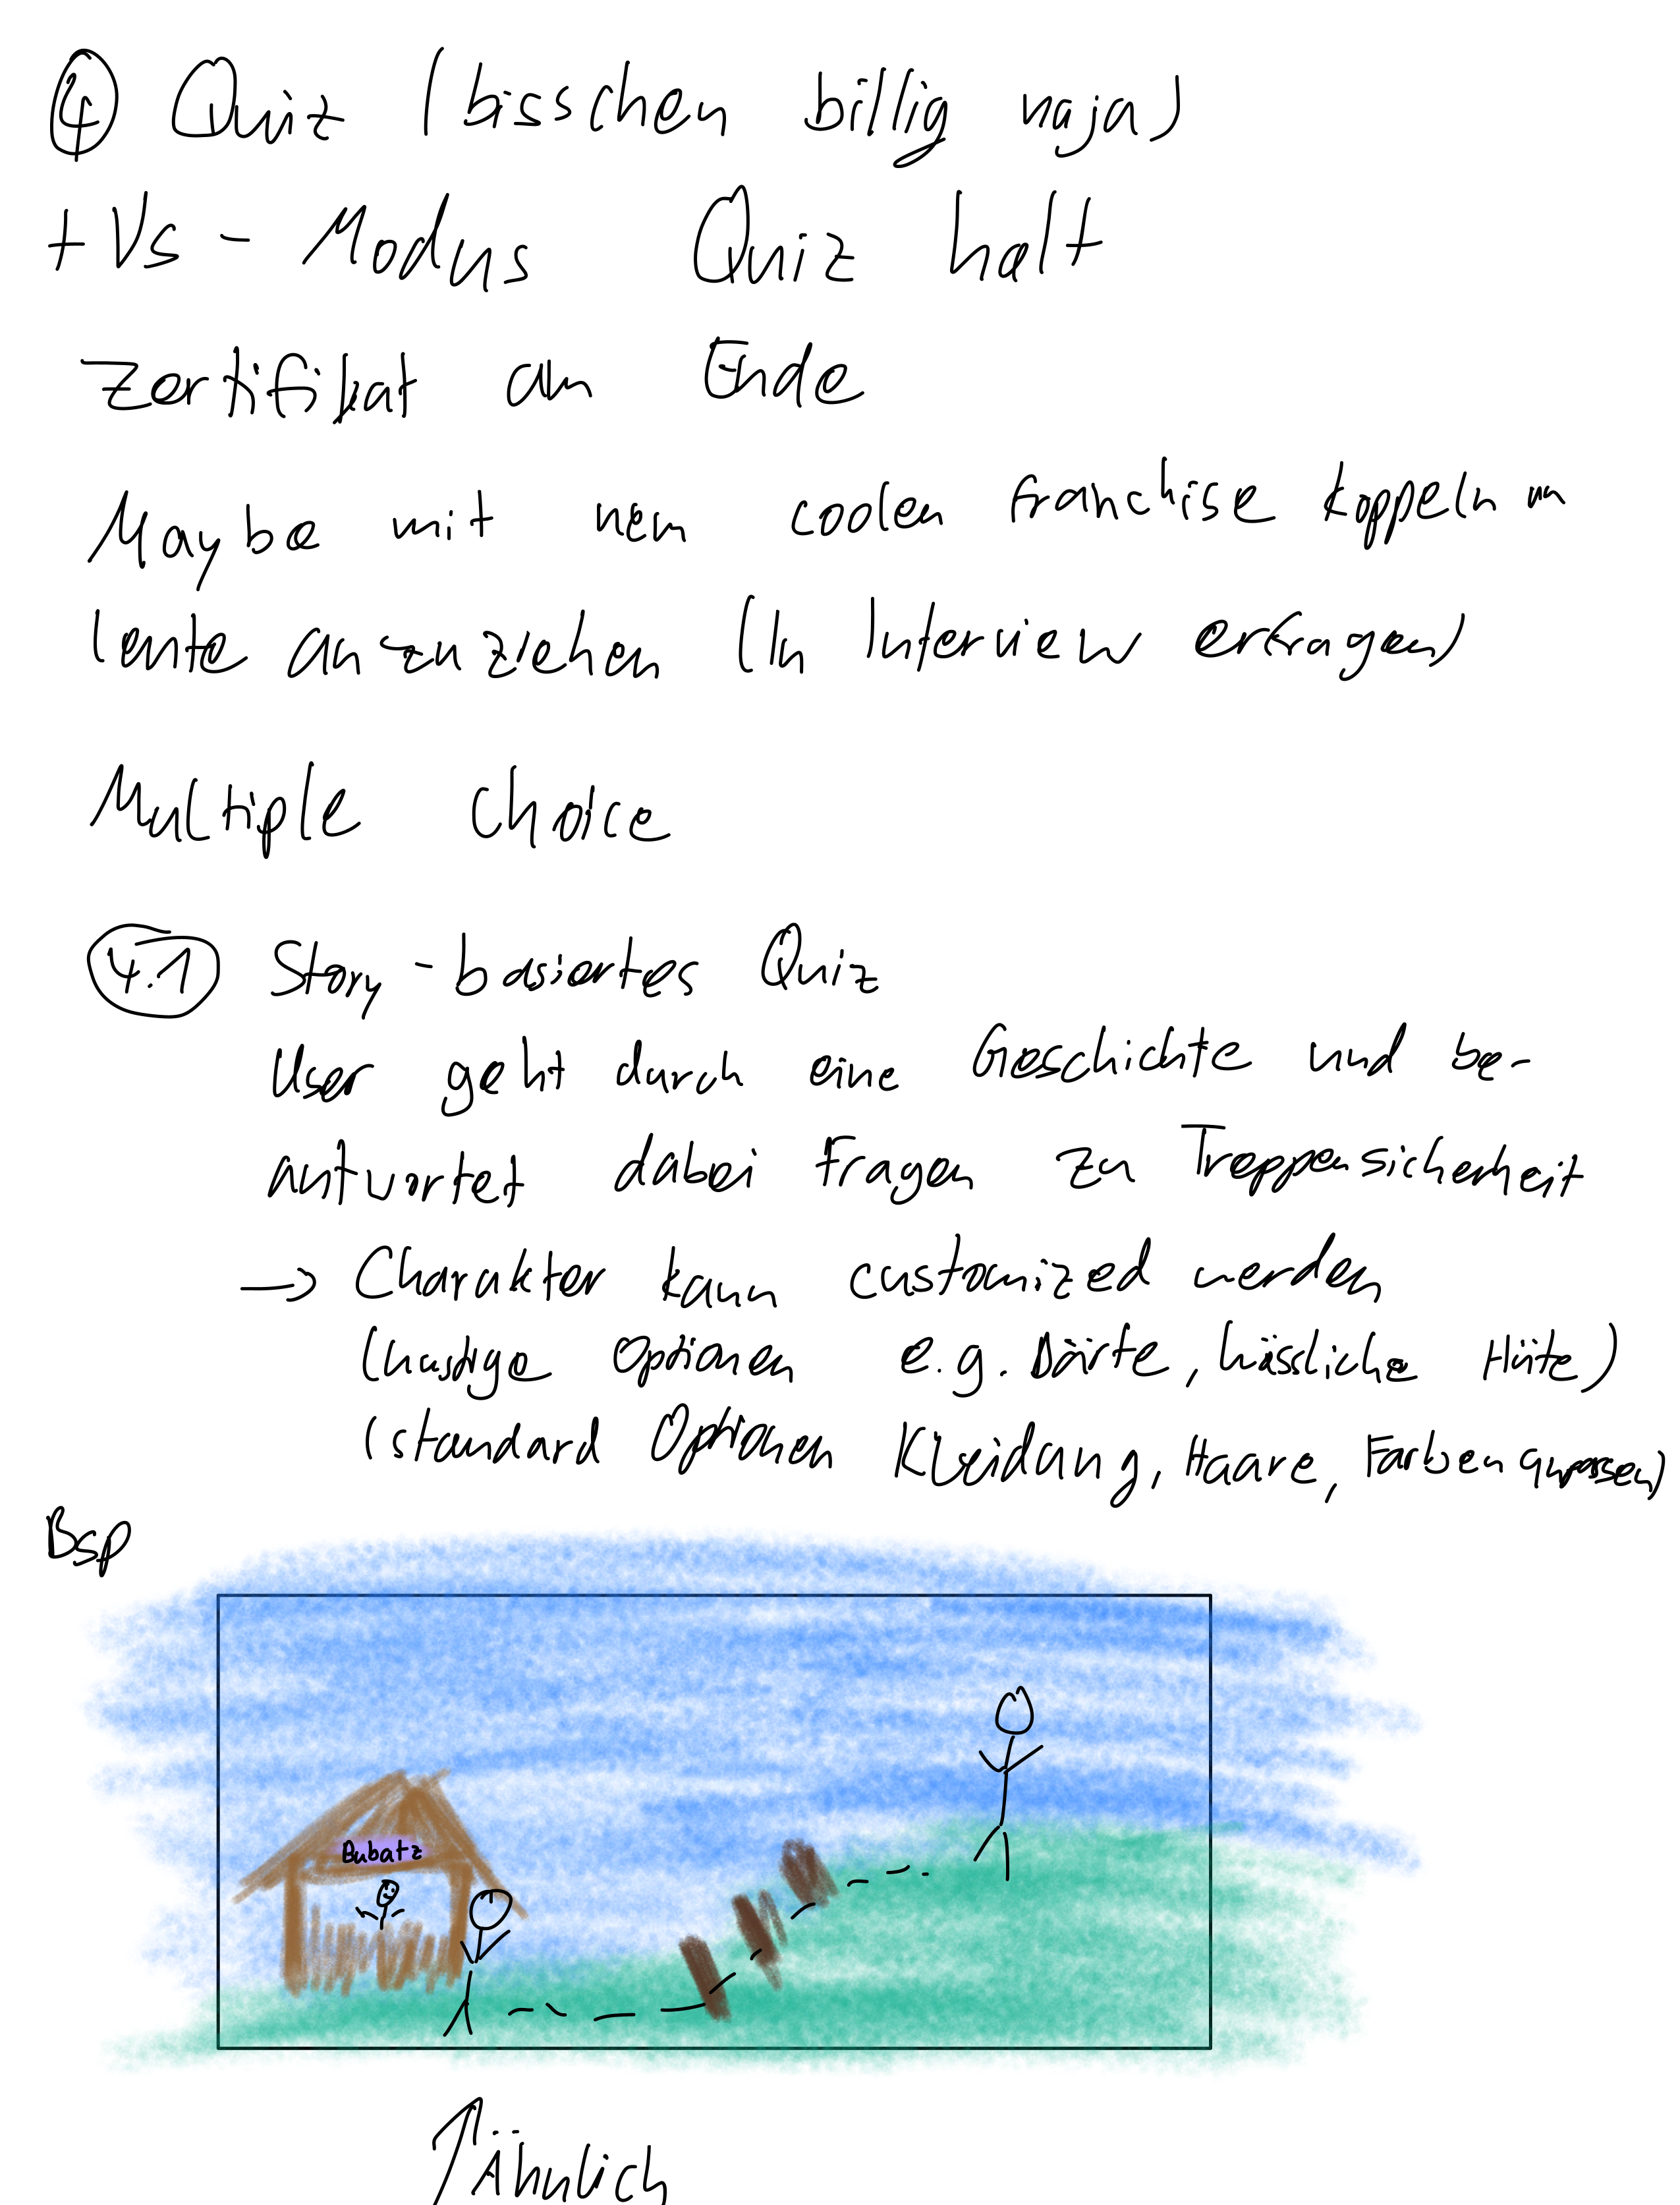 ④ Quiz (bisschen billig naja)
+ Vs - Modus Quiz halt
Zertifikat am Ende
Maybe mit nem coolen franchise koppeln um
leute anzuziehen (In Interview erfragen)
Multiple Choice
4.1 Story-basiertes Quiz
User geht durch eine Geschichte und be-
antwortet dabei Fragen zu Treppensicherheit
→ Charakter kann customized werden
(lustige Optionen e.g. Bärte, hässliche Hüte)
(standard Optionen Kleidung, Haare, Farben anpassen)
Bsp
Bubatz
↑ Ähnlich